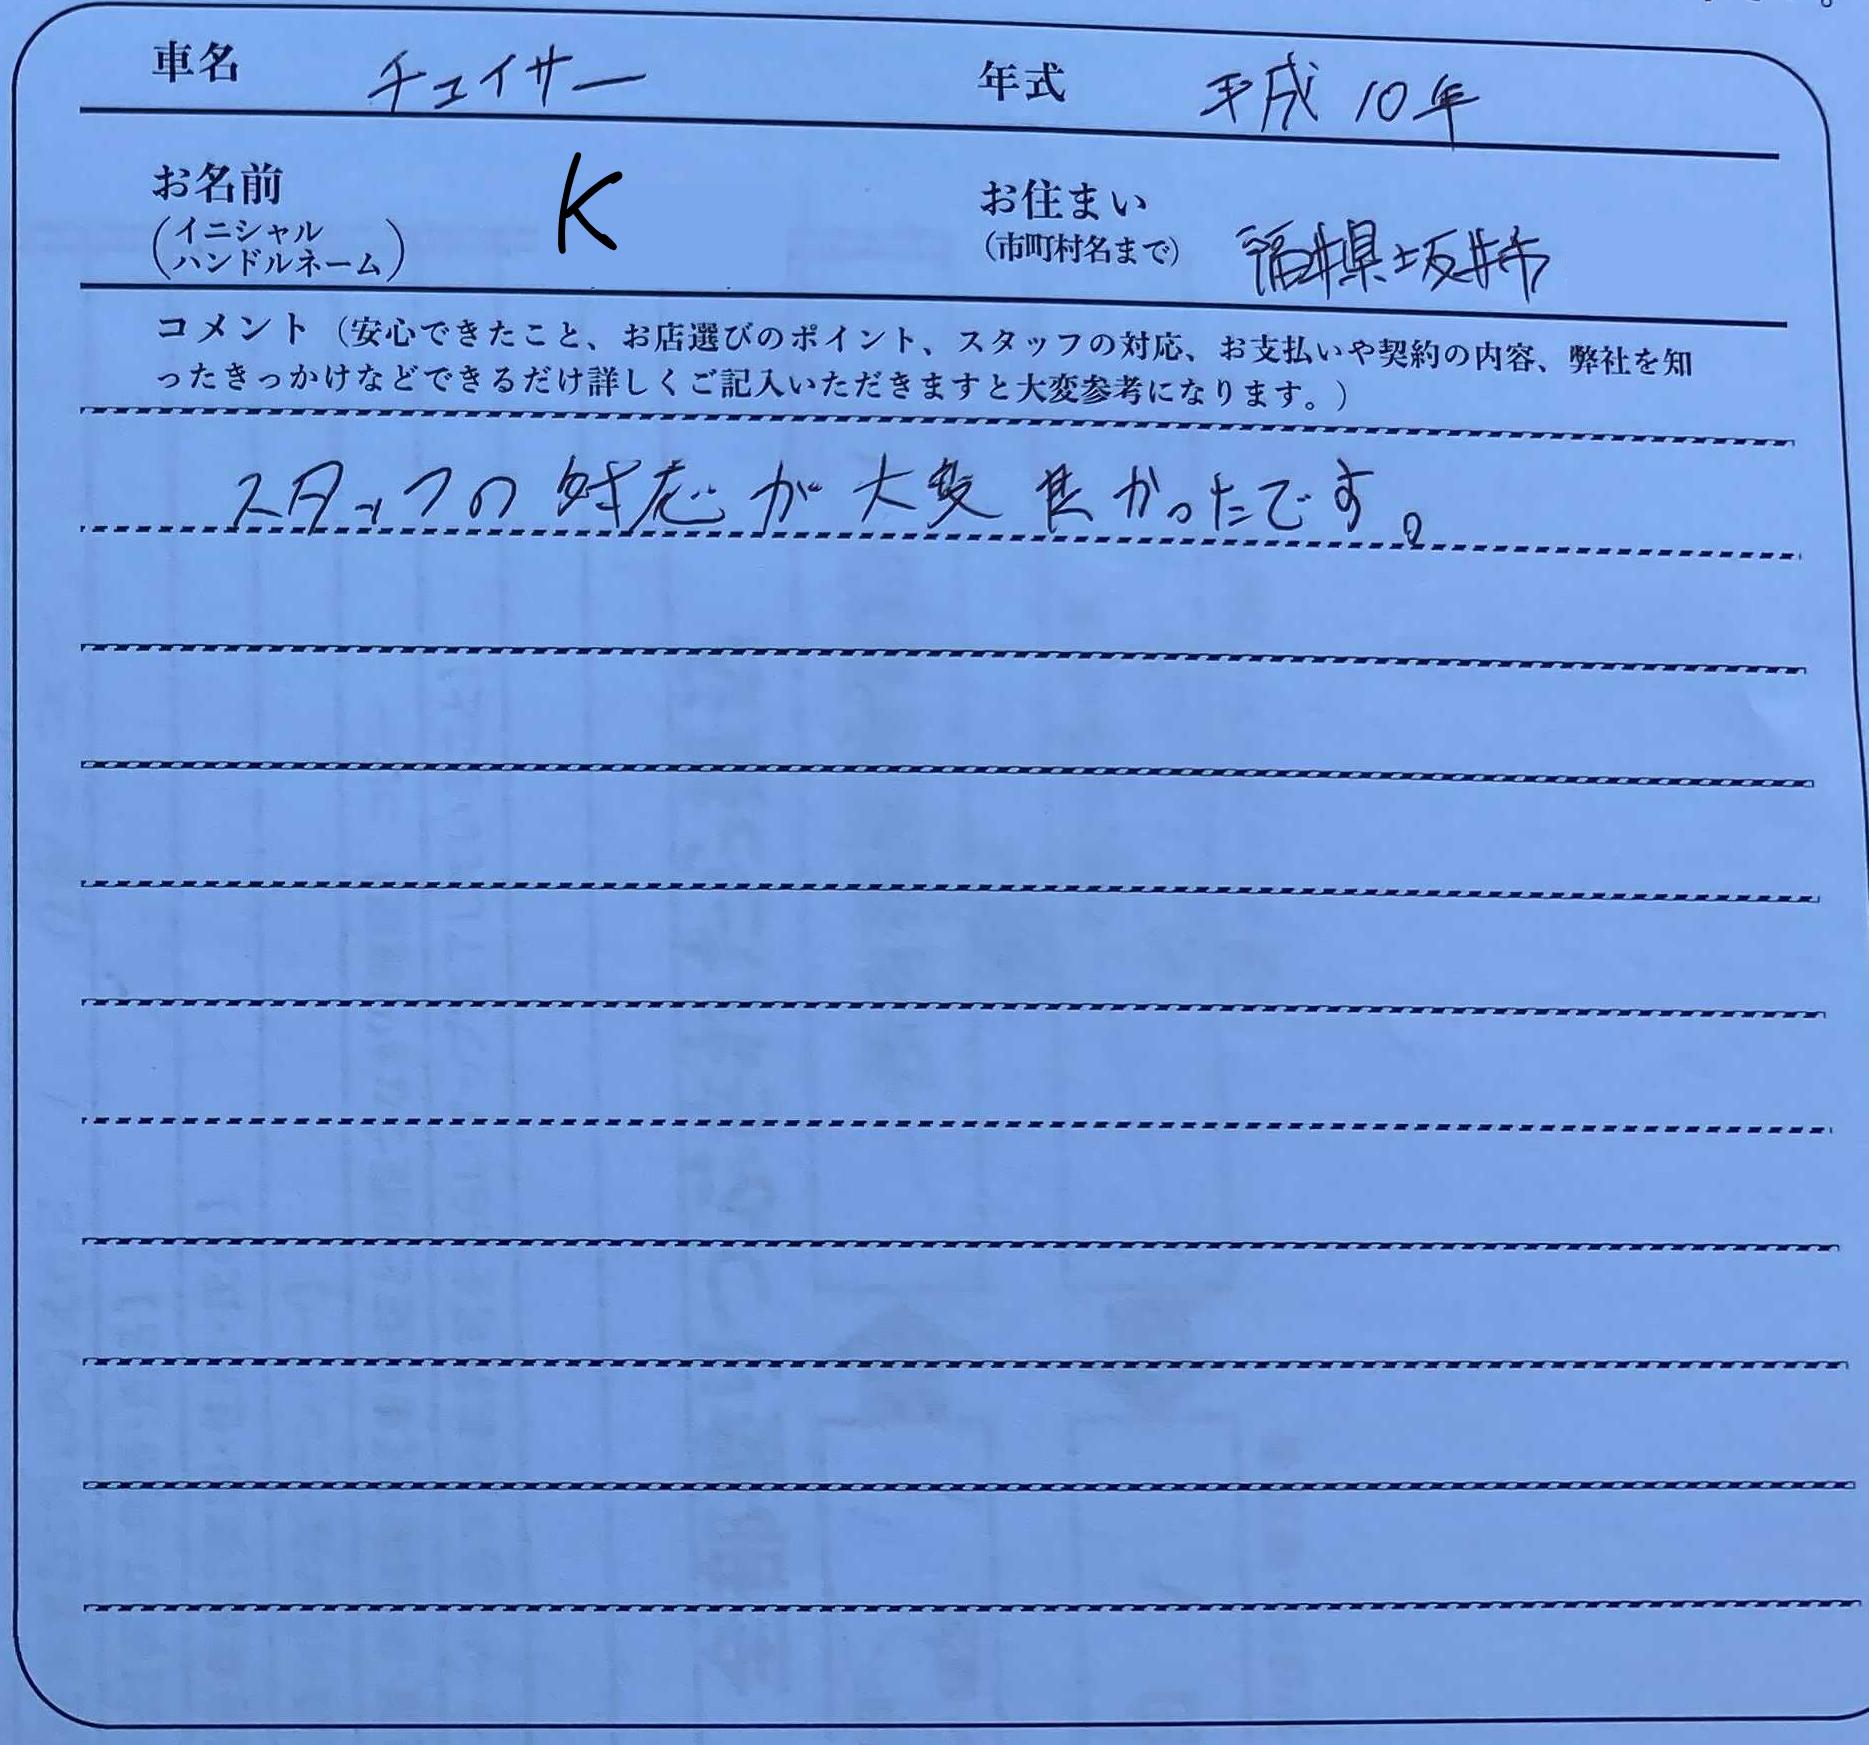 車名 チェイサー 年式 平成10年
お名前 K お住まい
(イニシャル
ハンドルネーム) (市町村名まで) 福井県坂井市
コメント(安心できたこと、お店選びのポイント、スタッフの対応、お支払いや契約の内容、弊社を知
ったきっかけなどできるだけ詳しくご記入いただきますと大変参考になります。)
スタッフの対応が大変良かったです。